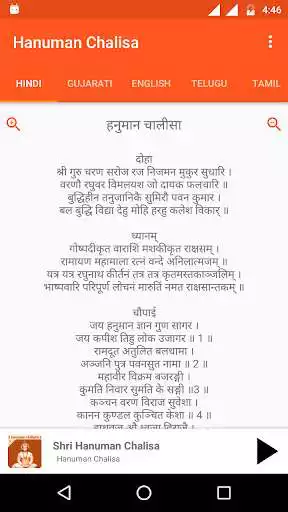 4:46
Hanuman Chalisa
HINDI GUJARATI ENGLISH TELUGU TAMIL
हनुमान चालीसा
दोहा
श्री गुरु चरण सरोज रज निजमन मुकुर सुधारि ।
वरणौ रघुवर विमलयश जो दायक फलवारि ॥
बुद्धिहीन तनुजानिकै सुमिरौ पवन कुमार ।
बल बुद्धि विद्या देहु मोहि हरहु कलेश विकार् ॥
ध्यानम्
गोष्पदीकृत वाराशिं मशकीकृत राक्षसम् ।
रामायण महामाला रत्नं वन्दे अनिलात्मजम् ॥
यत्र यत्र रघुनाथ कीर्तनं तत्र तत्र कृतमस्तकाञ्जलिम् ।
भाष्पवारि परिपूर्ण लोचनं मारुतिं नमत राक्षसान्तकम् ॥
चौपाई
जय हनुमान ज्ञान गुण सागर ।
जय कपीश तिहु लोक उजागर ॥ 1 ॥
रामदूत अतुलित बलधामा ।
अञ्जनि पुत्र पवनसुत नामा ॥ 2 ॥
महावीर विक्रम बजरङ्गी ।
कुमति निवार सुमति के सङ्गी ॥3 ॥
कञ्चन वरण विराज सुवेशा ।
कानन कुण्डल कुञ्चित केशा ॥ 4 ॥
Shri Hanuman Chalisa
Hanuman Chalisa